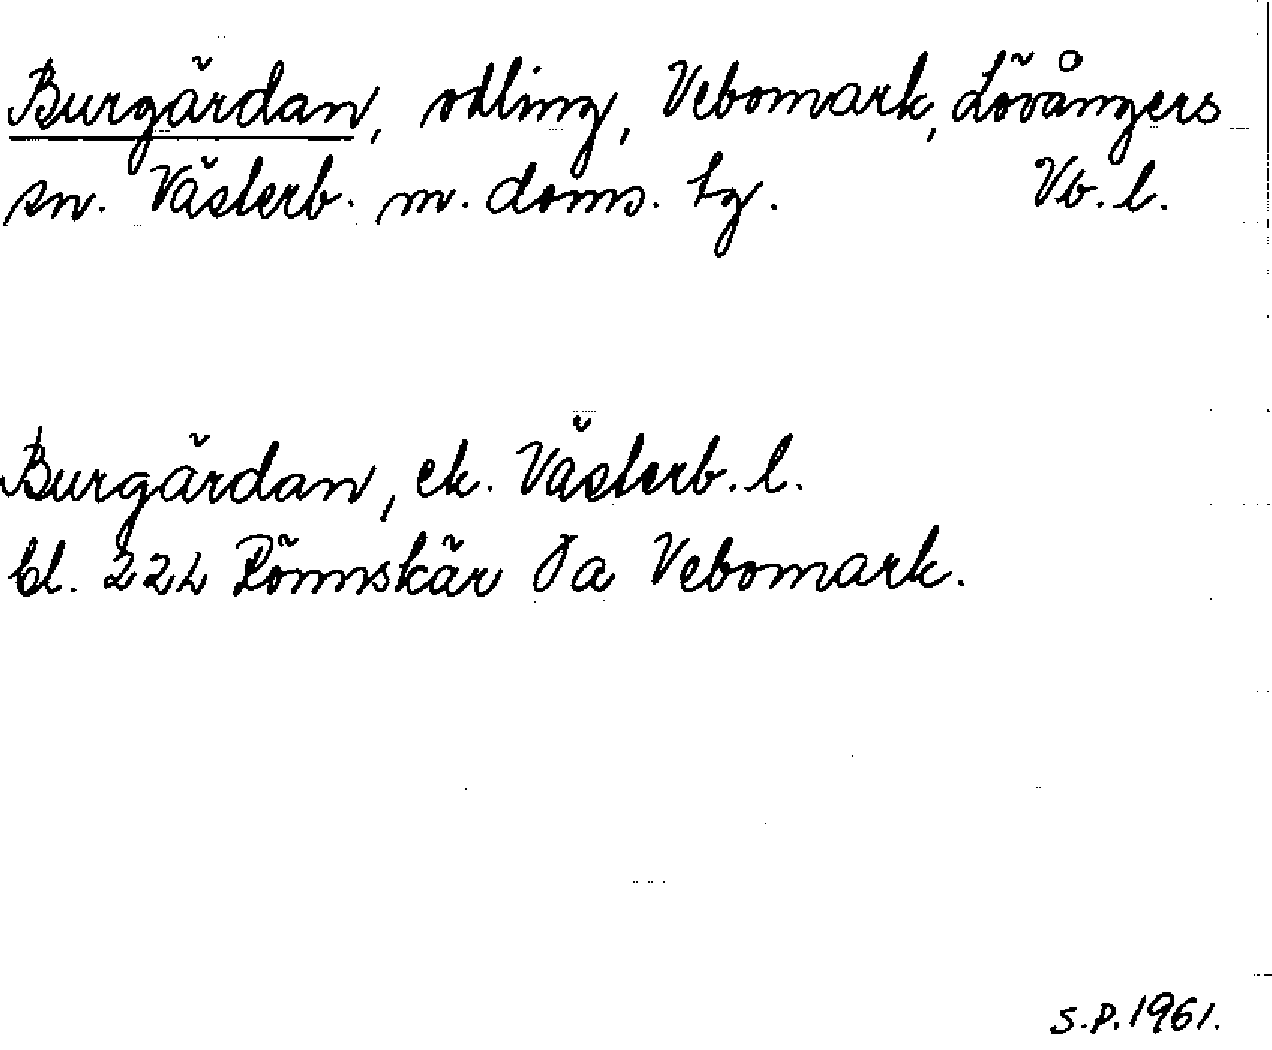 Burgärdan, odling, Vebomark, Lövångers
sn. Västerb. m. doms. tg. Vb. l.
Burgärdan, ek. Västerb. l.
bl. 222 Rönnskär Öa Vebomark.
S.P. 1961.